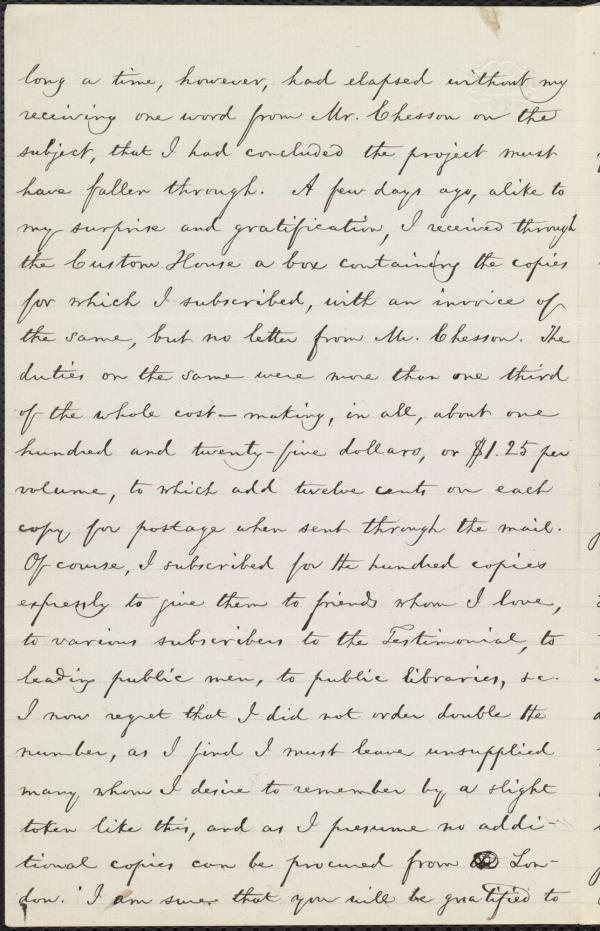 long a time, however, had elapsed without my
receiving one word from Mr. Chesson on the
subject, that I had concluded the project must
have fallen through. A few days ago, alike to
my surprise and gratification, I received through
the Custom House a box containing the copies
for which I subscribed, with an invoice of
the same, but no letter from Mr. Chesson. The
duties on the same were more than one third
of the whole cost—making, in all, about one
hundred and twenty-five dollars, or $1.25 per
volume, to which add twelve cents on each
copy for postage when sent through the mail.
Of course, I subscribed for the hundred copies
expressly to give them to friends whom I love,
to various subscribers to the Testimonial, to
leading public men, to public libraries, &c.
I now regret that I did not order double the
number, as I find I must leave unsupplied
many whom I desire to remember by a slight
token like this, and as I presume no addi-
tional copies can be procured from Lon-
don. I am sure that you will be gratified to